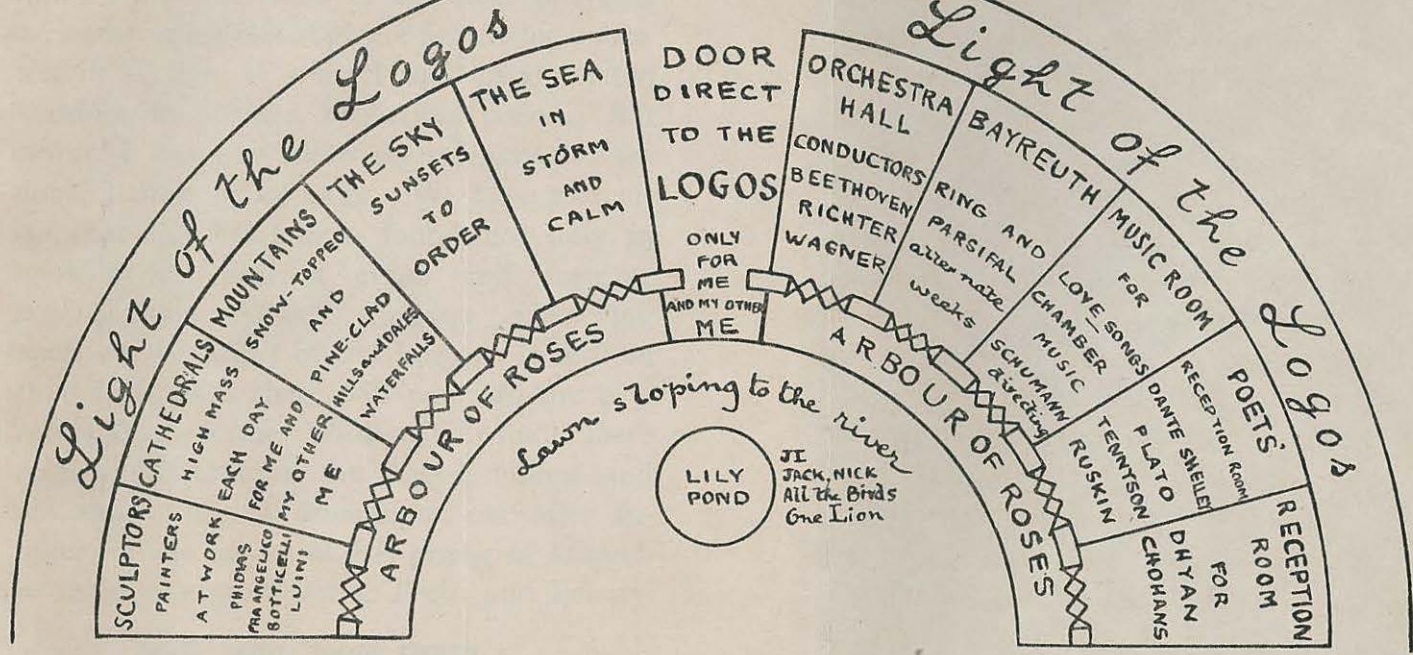 Light of the Logos
Light of the Logos
SCULPTORS
PAINTERS
AT WORK
PHIDIAS
FRA ANGELICO
BOTTICELLI
LUINI
CATHEDRALS
HIGH MASS
EACH DAY
FOR ME AND
MY OTHER
ME
MOUNTAINS
SNOW-TOPPED
AND
PINE-CLAD
HILLS and DALES
WATERFALLS
THE SKY
SUNSETS
TO
ORDER
THE SEA
IN
STORM
AND
CALM
DOOR
DIRECT
TO THE
LOGOS
ONLY
FOR
ME
AND MY OTHER
ME
ORCHESTRA
HALL
CONDUCTORS
BEETHOVEN
RICHTER
WAGNER
BAYREUTH
RING AND
PARSIFAL
alternate
weeks
MUSIC ROOM
FOR
LOVE-SONGS
CHAMBER
MUSIC
SCHUMANN
directing
POETS'
RECEPTION ROOM
DANTE SHELLEY
PLATO
TENNYSON
RUSKIN
RECEPTION
ROOM
FOR
DHYAN
CHOHANS
ARBOUR OF ROSES
ARBOUR OF ROSES
Lawn sloping to the river
LILY
POND
JI
JACK, NICK
All the Birds
One Lion